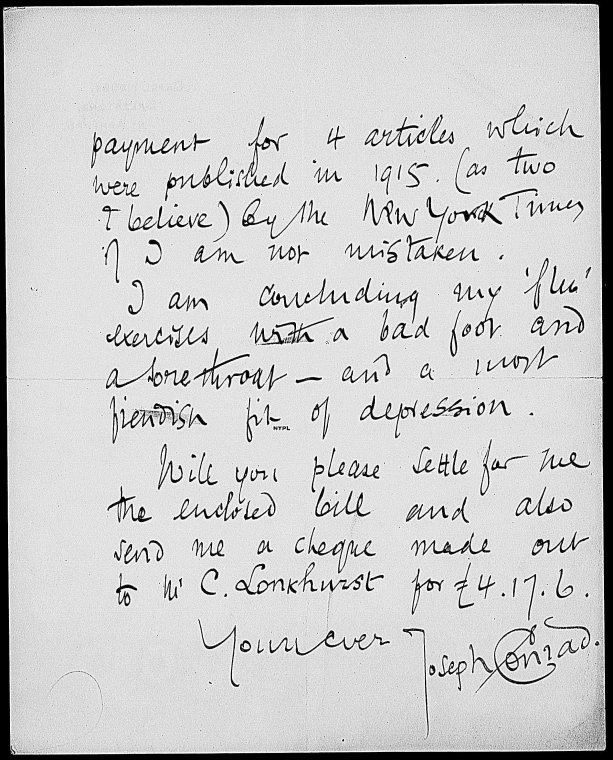 payment for 4 articles which
were published in 1915. (as two
I believe) by the New York Times
if I am not mistaken.
I am concluding my 'flu'
exercises with a bad foot and
a sore throat – and a most
fiendish fit of depression.
NYPL
Will you please settle for me
the enclosed bill and also
send me a cheque made out
to C. Lonkhurst for £4.17.6.
Yours ever
Joseph Conrad.